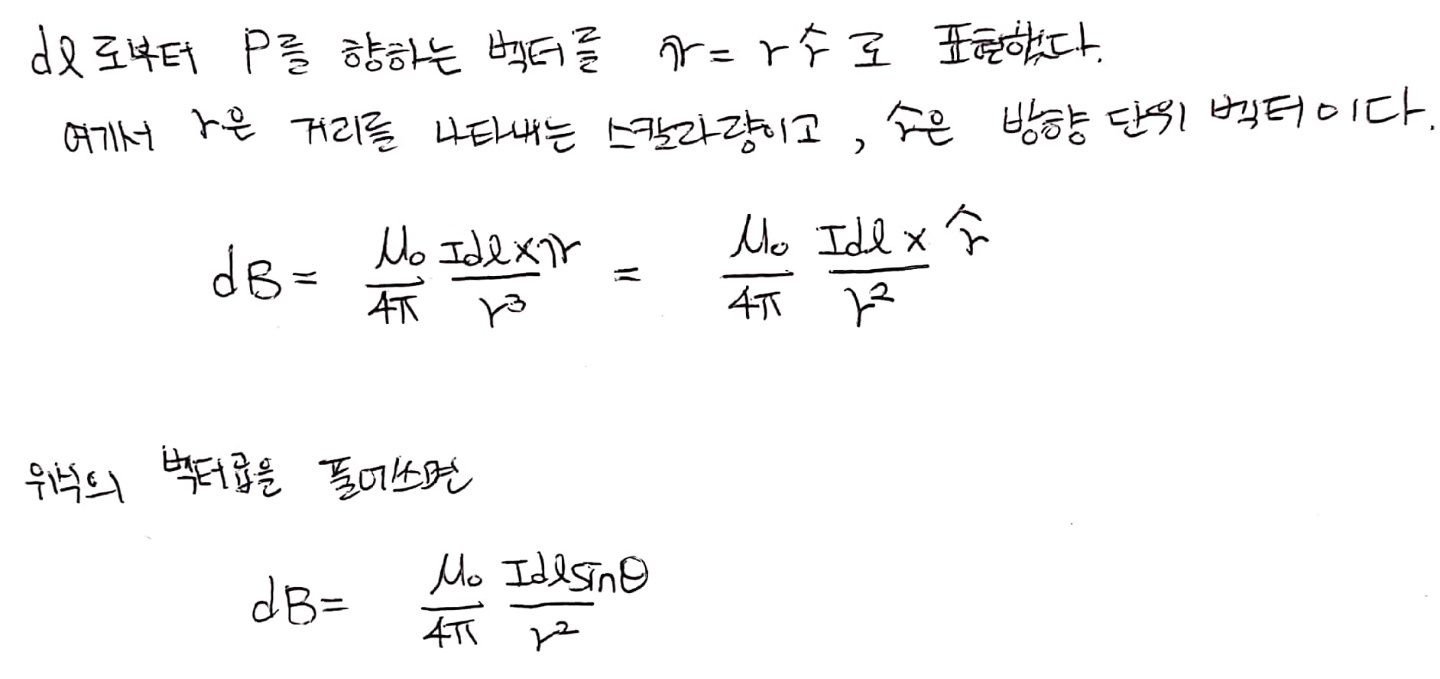 dl로부터 P를 향하는 벡터를 𝕣 = r r̂ 로 표현했다.
여기서 r은 거리를 나타내는 스칼라량이고, r̂은 방향 단위 벡터이다.
dB = μ₀/4π Idl×𝕣/r³ = μ₀/4π Idl×r̂/r²
위식의 벡터곱을 풀어쓰면
dB = μ₀/4π Idlsinθ/r²